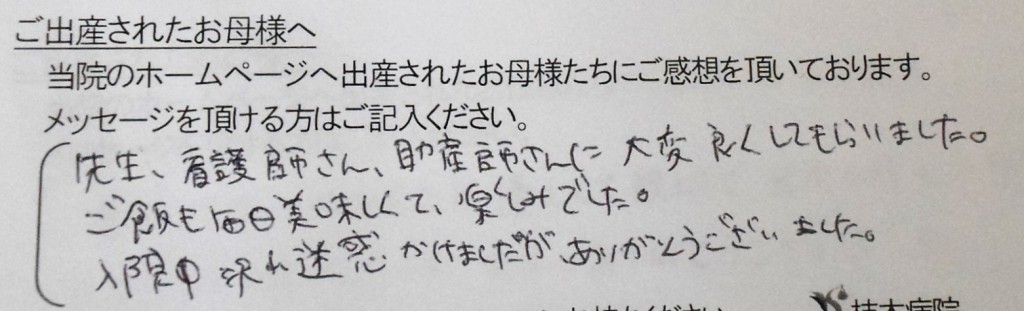 ご出産されたお母様へ
当院のホームページへ出産されたお母様たちにご感想を頂いております。
メッセージを頂ける方はご記入ください。
先生、看護師さん、助産師さんに大変良くしてもらいました。
ご飯も毎日美味しくて、楽しみでした。
入院中 迷惑かけましたがありがとうございました。
病院